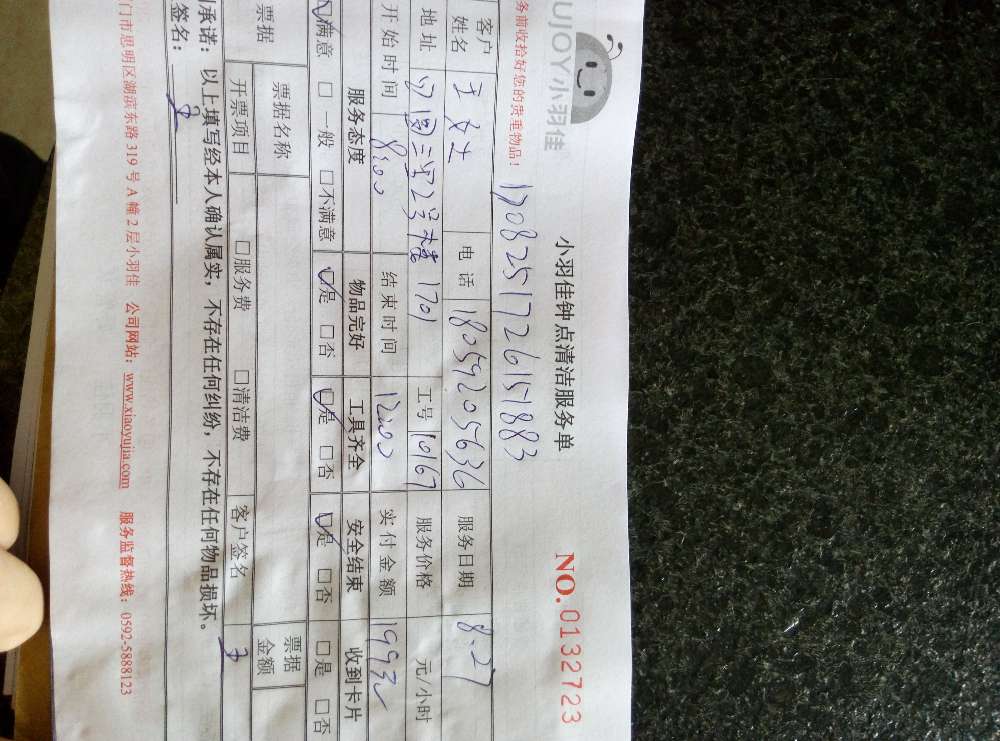 UJOY小羽佳
小羽佳钟点清洁服务单
NO. 0132723
务前收拾好您的贵重物品！
1708251726151883
客户姓名 王女士 电话 18059205636 服务日期 8.27
地址 2号楼 1701 工号 10167 服务价格 元/小时
开始时间 8:00 结束时间 12:00 实付金额 1993
服务态度 物品完好 工具齐全 安全结束 收到卡片
☑满意 □一般 □不满意 ☑是 □否 ☑是 □否 ☑是 □否 □是 □否
票据 票据名称 票据金额
开票项目 □服务费 □清洁费 客户签名 王
承诺：以上填写经本人确认属实，不存在任何纠纷，不存在任何物品损坏。
签名：王
门市思明区湖滨东路 319 号 A 幢 2 层小羽佳 公司网站：www.xiaoyujia.com 服务监督热线：0592-5888123